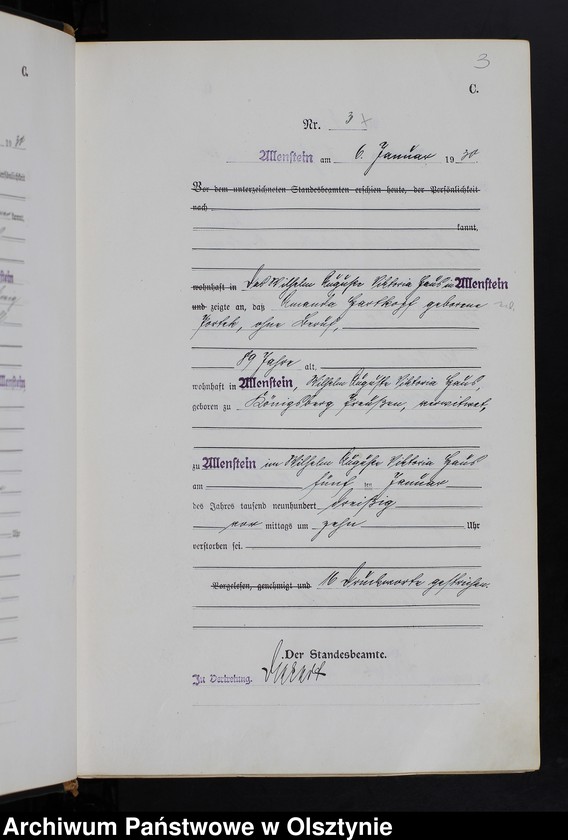 3
C.
Nr. 3
Allenstein am 6. Januar 1930
Vor dem unterzeichneten Standesbeamten erschien heute, der Persönlichkeit
nach
kannt,
wohnhaft in Das Wilhelm Auguste Viktoria Haus in Allenstein
und zeigte an, daß Amanda Hartkopf geborene
ohne Beruf,
89 Jahre alt,
wohnhaft in Allenstein, Wilhelm Auguste Viktoria Haus,
geboren zu Königsberg Preußen, verwitwet,
zu Allenstein im Wilhelm Auguste Viktoria Haus
am fünf ten Januar
des Jahres tausend neunhundert dreißig
vor mittags um zehn Uhr
verstorben sei.
Vorgelesen, genehmigt und 16 Druckworte gestrichen.
Der Standesbeamte.
In Vertretung.
C.
1930
Allenstein
Allenstein
Uhr
Archiwum Państwowe w Olsztynie